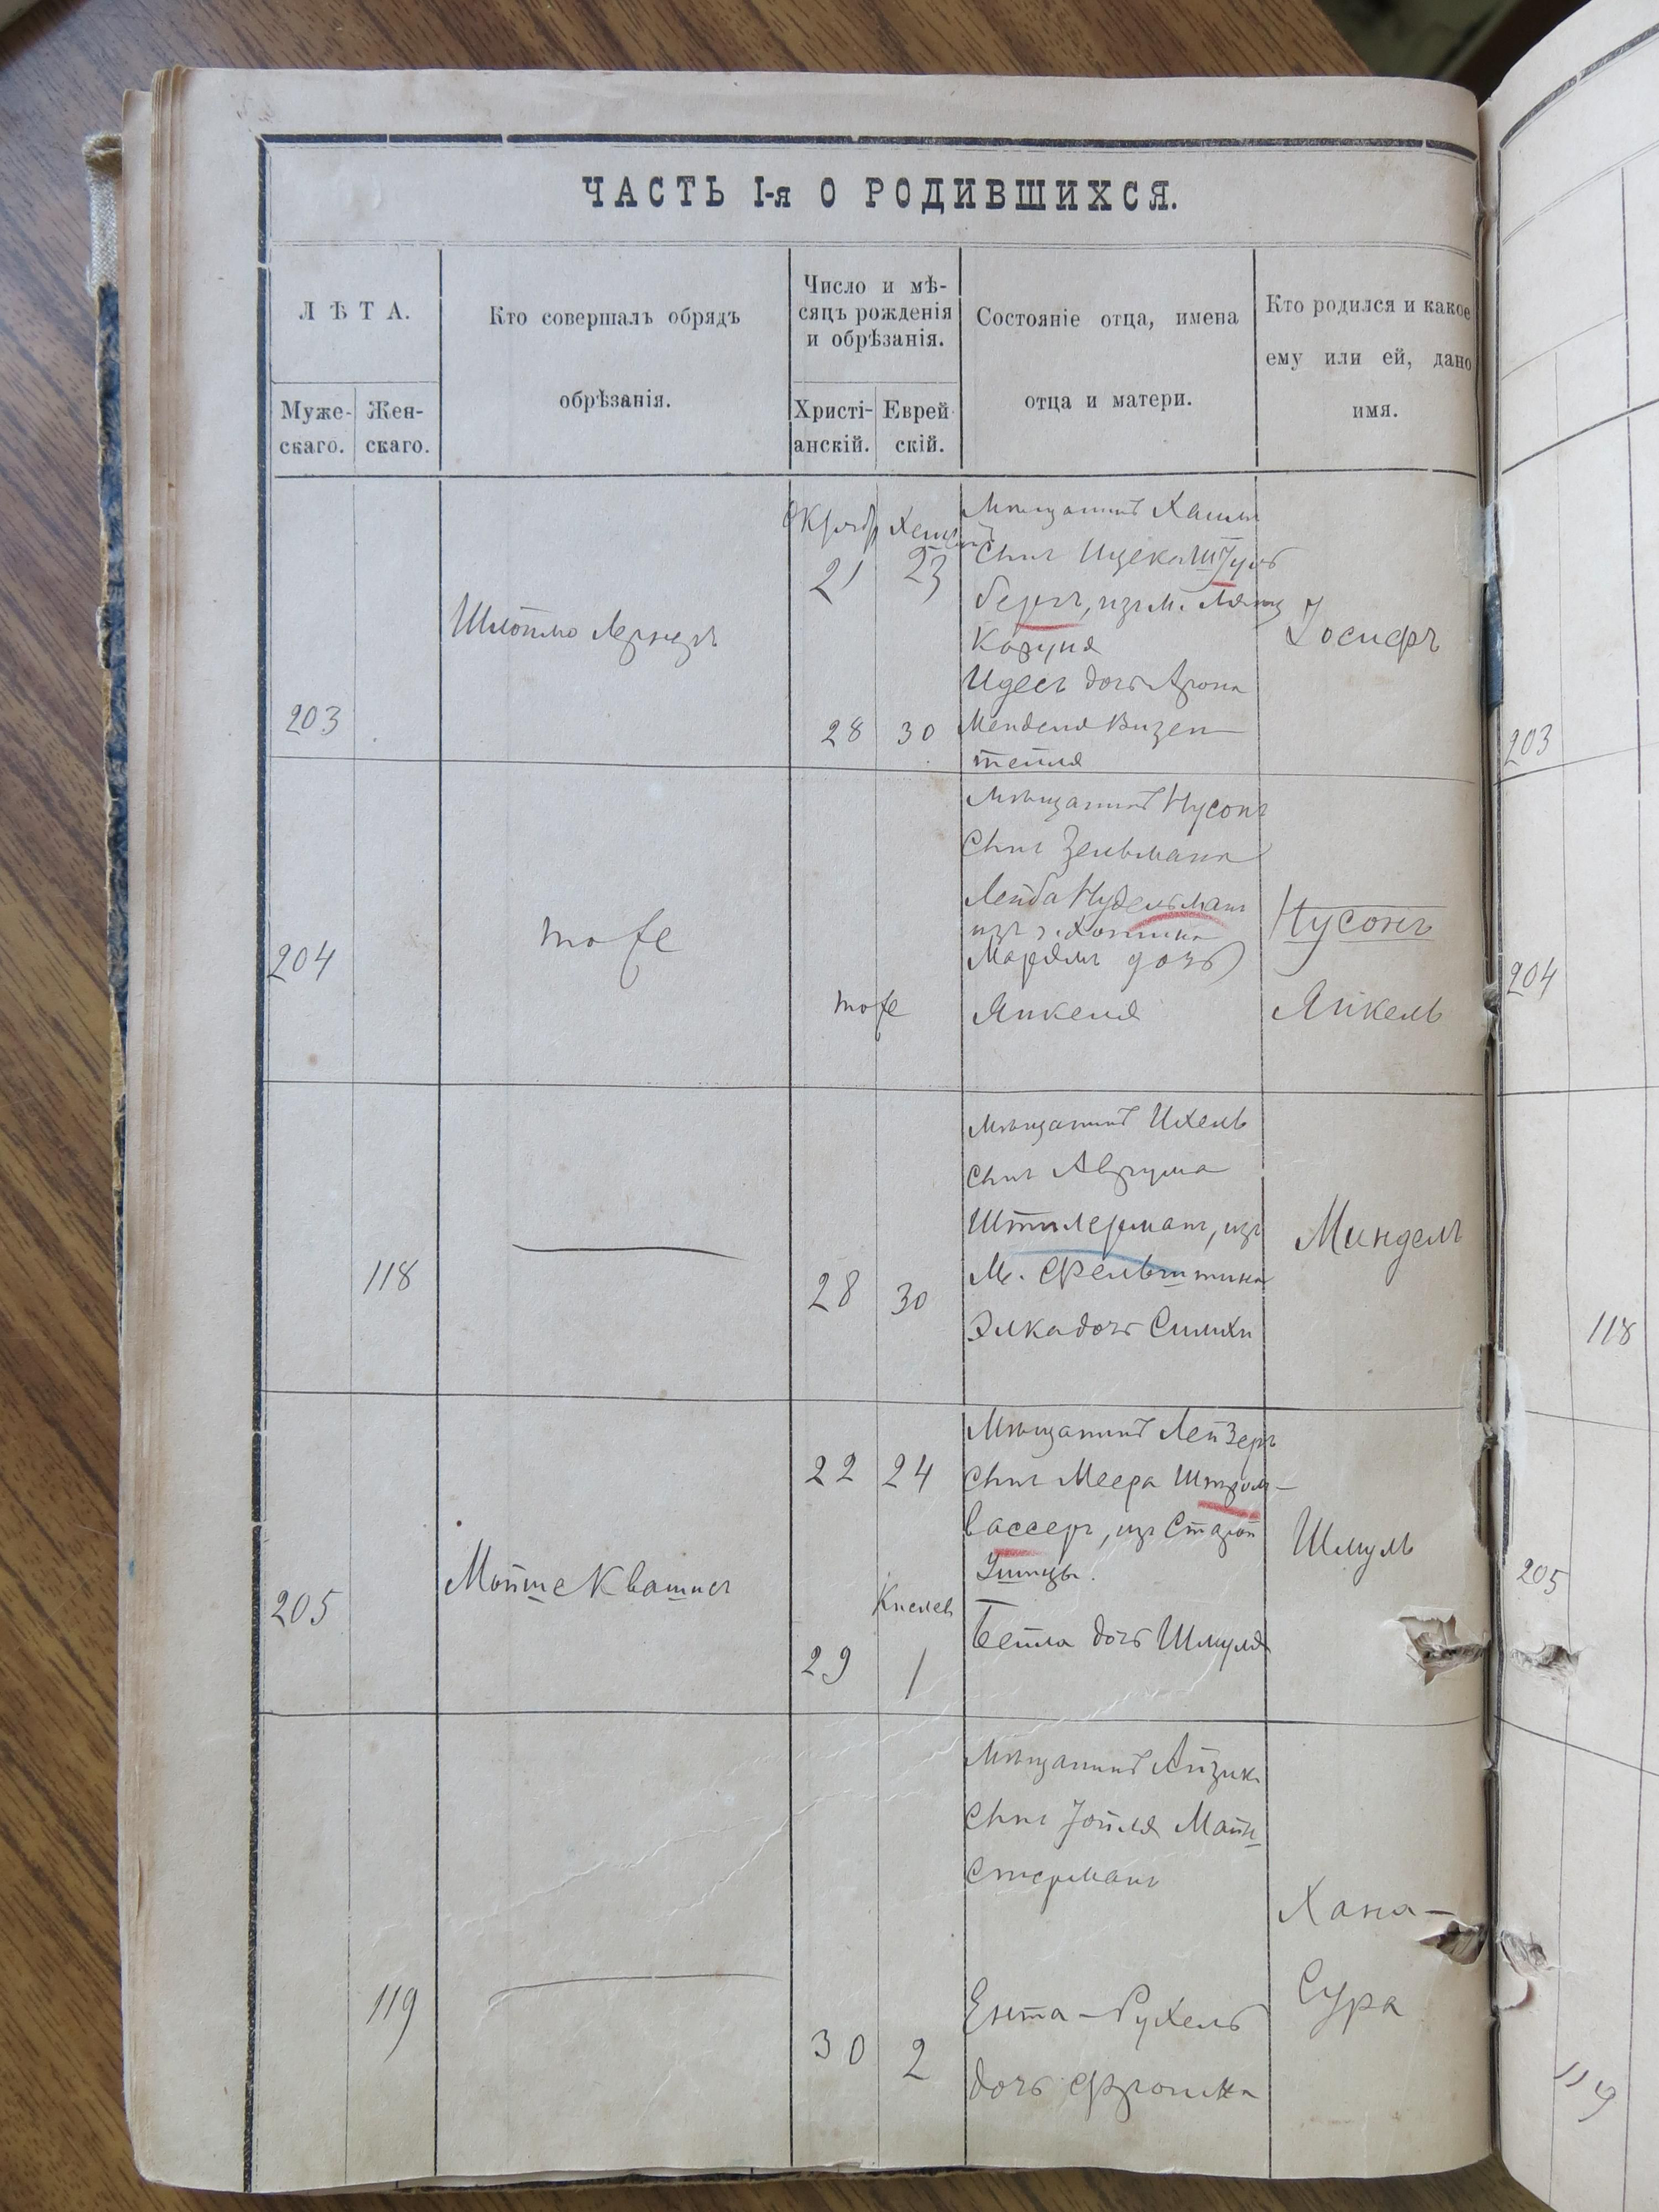 ЧАСТЬ I-я О РОДИВШИХСЯ.
ЛѢТА.
Муже-
скаго.
Жен-
скаго.
Кто совершалъ обрядъ
обрѣзанія.
Число и мѣ-
сяцъ рожденія
и обрѣзанія.
Христі-
анскій.
Еврей
скій.
Состояніе отца, имена
отца и матери.
Кто родился и какое
ему или ей, дано
имя.
203
Шлоймо
Октябр
21
23
28
30
Мѣщанинъ Хаимъ
сынъ Ицека Штуль
бергъ, изъ м.
Идесъ дочь Арона
Менделя Визен
тейля
Іосифъ
203
204
тоже
тоже
Мѣщанинъ Нусонъ
сынъ Зельмана
Лейба Нудельманъ
изъ г. Хотина
Маріямъ дочь
Янкеля
Нусонъ
Янкель
204
118
28
30
Мѣщанинъ Ихель
сынъ Аврума
Штилерманъ, изъ
м. Фельштина
Элка дочь Симхи
Миндель
118
205
Мойше Квашис
22
24
Кислев
29
1
Мѣщанинъ Лейзеръ
сынъ Меера Штром-
вассеръ, изъ Старой
Ушицы.
Бейла дочь Шмуля
Шмуль
205
119
30
2
Мѣщанинъ Айзик
сынъ Іойля Майн
стерманъ
Ента-Рухель
дочь Фроима
Хана-
Сура
119